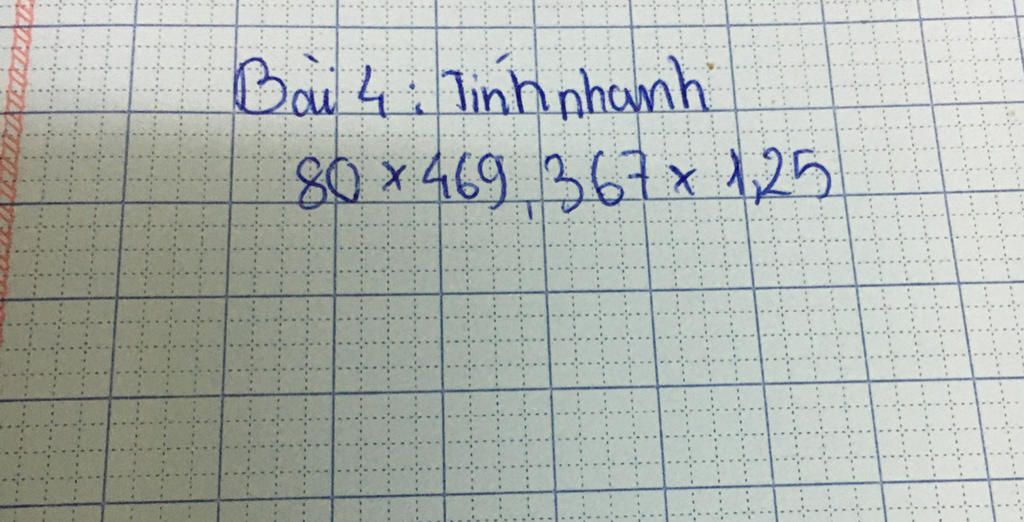 Bài 4: Tính nhanh
80 × 469,367 × 1,25